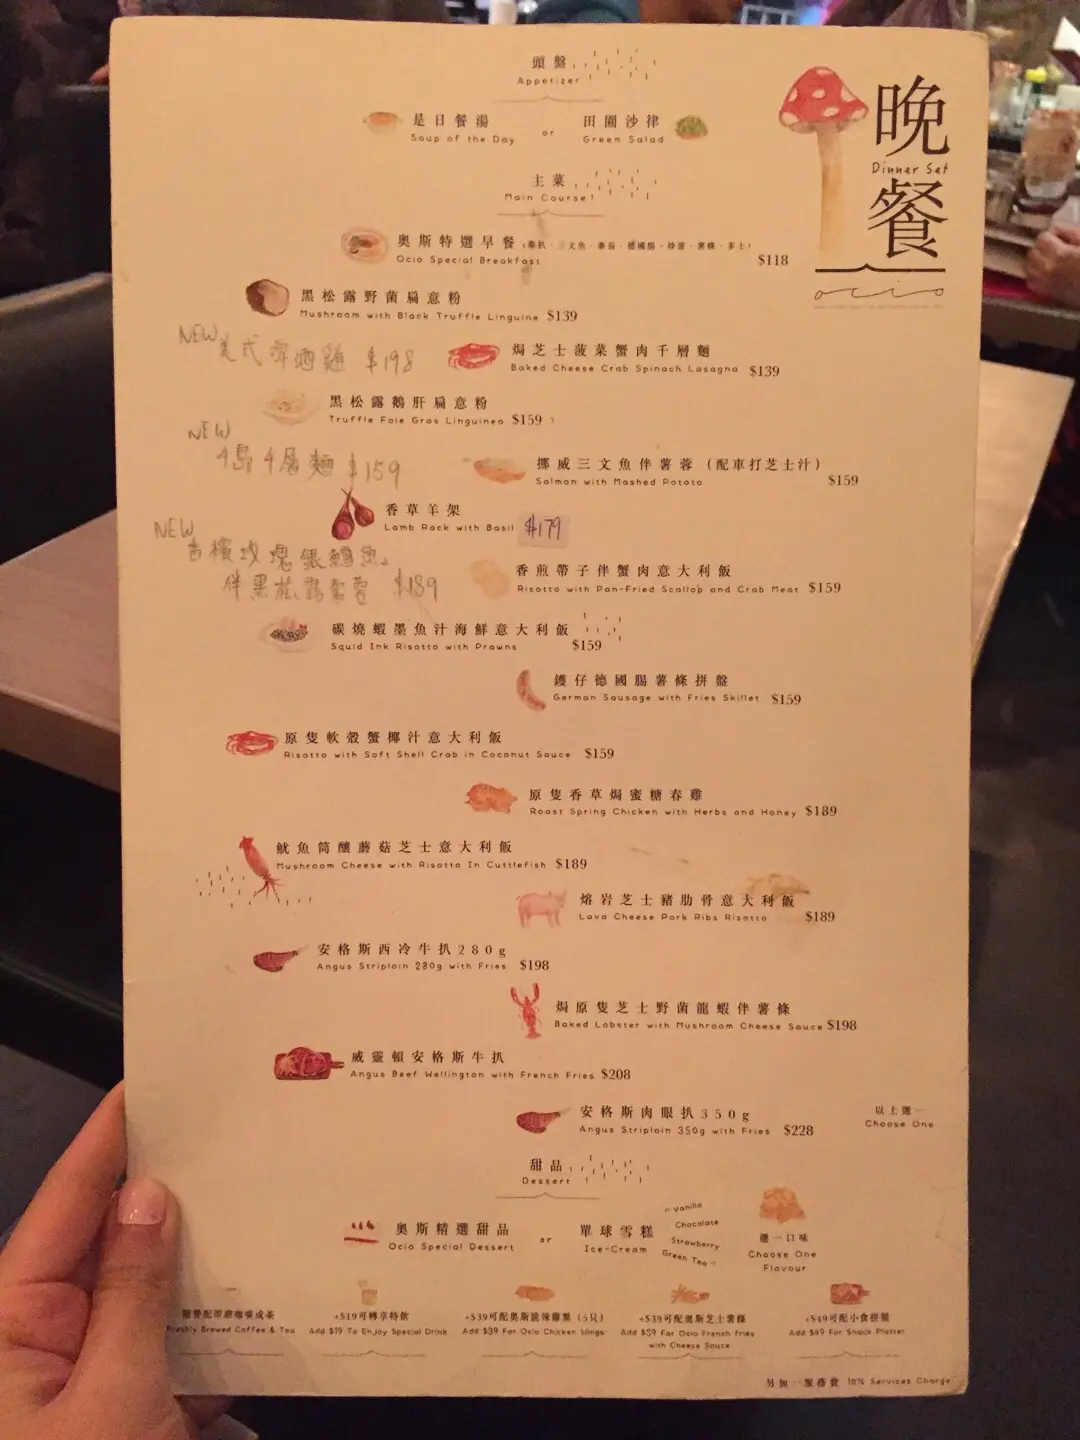 頭盤
Appetizer
晚餐
Dinner Set
ocio
是日餐湯
Soup of the Day
or
田園沙律
Green Salad
主菜
Main Course
奧斯特選早餐
Ocio Special Breakfast
$118
黑松露野菌扁意粉
Mushroom with Black Truffle Linguine $139
NEW
美式啤酒雞 $198
焗芝士菠菜蟹肉千層麵
Baked Cheese Crab Spinach Lasagna $139
黑松露鵝肝扁意粉
Truffle Foie Gras Linguinea $159
NEW
4層麵 $159
挪威三文魚伴薯蓉（配車打芝士汁）
Salmon with Mashed Potato $159
香草羊架
Lamb Rack with Basil $179
NEW
吉檳玫瑰銀鱈魚
伴黑松露薯蓉 $189
香煎帶子伴蟹肉意大利飯
Risotto with Pan-Fried Scallop and Crab Meat $159
碳燒蝦墨魚汁海鮮意大利飯
Squid Ink Risotto with Prawns $159
鑊仔德國腸薯條拼盤
German Sausage with Fries Skillet $159
原隻軟殼蟹椰汁意大利飯
Risotto with Soft Shell Crab in Coconut Sauce $159
原隻香草焗蜜糖春雞
Roast Spring Chicken with Herbs and Honey $189
魷魚筒釀蘑菇芝士意大利飯
Mushroom Cheese with Risotto In Cuttlefish $189
熔岩芝士豬肋骨意大利飯
Lava Cheese Pork Ribs Risotto $189
安格斯西冷牛扒280g
Angus Striploin 280g with Fries $198
焗原隻芝士野菌龍蝦伴薯條
Baked Lobster with Mushroom Cheese Sauce $198
威靈頓安格斯牛扒
Angus Beef Wellington with French Fries $208
安格斯肉眼扒350g
Angus Striploin 350g with Fries $228
以上選一
Choose One
甜品
Dessert
奧斯精選甜品
Ocio Special Dessert
or
單球雪糕
Ice-Cream
"Vanilla
Chocolate
Strawberry
Green Tea"
選一口味
Choose One
Flavour
隨餐配即磨咖啡或茶
Freshly Brewed Coffee & Tea
+$19可轉享特飲
Add $19 To Enjoy Special Drink
+$39可配奧斯脆辣雞翼（5只）
Add $39 For Ocio Chicken Wings
+$39可配奧斯芝士薯條
Add $39 For Ocio French fries
with Cheese Sauce
+$49可配小食拼盤
Add $49 For Snack Platter
另加一服務費 10% Services Charge